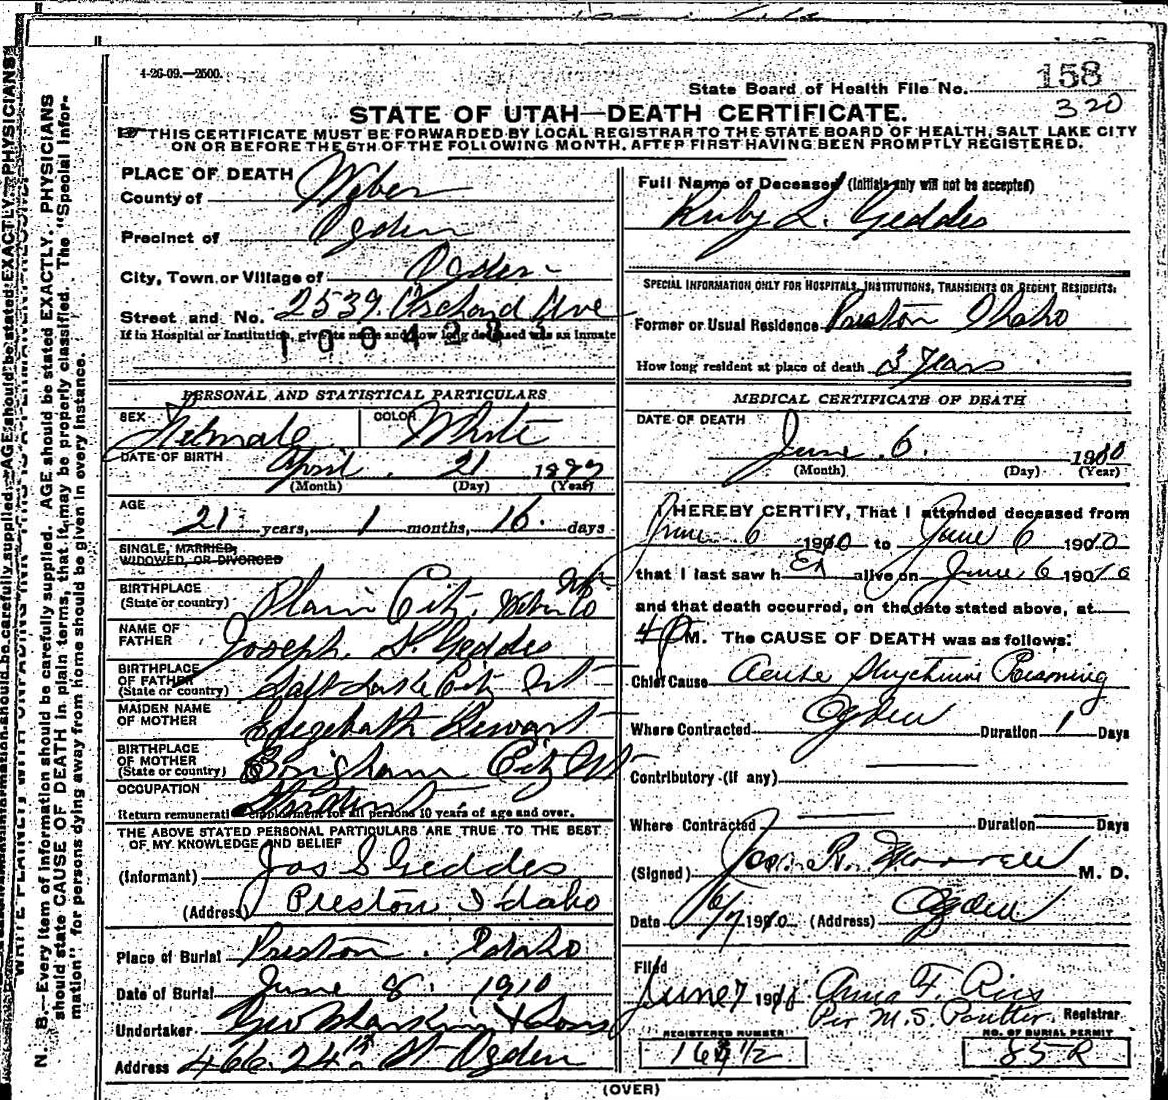 4-26-09.—2500.
State Board of Health File No. 158
320
STATE OF UTAH—DEATH CERTIFICATE.
THIS CERTIFICATE MUST BE FORWARDED BY LOCAL REGISTRAR TO THE STATE BOARD OF HEALTH, SALT LAKE CITY
ON OR BEFORE THE 5TH OF THE FOLLOWING MONTH, AFTER FIRST HAVING BEEN PROMPTLY REGISTERED.
PLACE OF DEATH
County of Weber
Precinct of Ogden
City, Town or Village of Ogden
Street and No. 2539 Orchard Ave
If in Hospital or Institution, give its name and how long deceased was an inmate
PERSONAL AND STATISTICAL PARTICULARS
SEX Female COLOR White
DATE OF BIRTH April 21
(Month) (Day) (Year)
AGE 21 years, 1 months, 16 days
SINGLE, MARRIED,
WIDOWED, OR DIVORCED
BIRTHPLACE
(State or country) Plain City, Weber Co
NAME OF
FATHER Joseph S. Geddes
BIRTHPLACE
OF FATHER
(State or country) Salt Lake City Ut
MAIDEN NAME
OF MOTHER Elizabeth Stewart
BIRTHPLACE
OF MOTHER
(State or country) Brigham City Ut
OCCUPATION Student
Return remunerative employment for all persons 10 years of age and over.
THE ABOVE STATED PERSONAL PARTICULARS ARE TRUE TO THE BEST
OF MY KNOWLEDGE AND BELIEF
(Informant) Jos S Geddes
(Address) Preston, Idaho
Place of Burial Preston, Idaho
Date of Burial June 8, 1910
Undertaker Geo Larkin & Sons
Address 466. 24th St Ogden
Full Name of Deceased (Initials only will not be accepted)
Ruby L. Geddes
SPECIAL INFORMATION ONLY FOR HOSPITALS, INSTITUTIONS, TRANSIENTS OR RECENT RESIDENTS:
Former or Usual Residence Preston Idaho
How long resident at place of death 3 years
MEDICAL CERTIFICATE OF DEATH
DATE OF DEATH
June 6. 1910
(Month) (Day) (Year)
I HEREBY CERTIFY, That I attended deceased from
June 6 1910 to June 6 1910
that I last saw h er alive on June 6 1910
and that death occurred, on the date stated above, at
4 P M. The CAUSE OF DEATH was as follows:
Chief Cause Acute Strychnine Poisoning
Where Contracted Ogden Duration 1 Days
Contributory (if any)
Where Contracted Duration Days
(Signed) Jos. R. Morrell M. D.
Date 6/7 1910 (Address) Ogden
Filed
June 7 1910 Anna F. Ries
Per M. S. Registrar
REGISTERED NUMBER NO. OF BURIAL PERMIT
85 R
(OVER)
N. B.—Every item of information should be carefully supplied. AGE should be stated EXACTLY. PHYSICIANS
should state CAUSE OF DEATH in plain terms, that it may be properly classified. The "Special Infor-
mation" for persons dying away from home should be given in every instance.